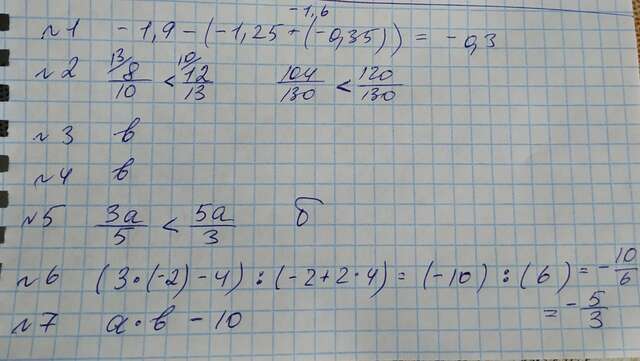 -1,6
№1 -1,9 - (-1,25 + (-0,35)) = -0,3
№2 13/ 8/10 < 10/ 12/13 104/130 < 120/130
№3 в
№4 в
№5 3a/5 < 5a/3 б
№6 (3·(-2)-4) : (-2+2·4) = (-10) : (6) = -10/6
= -5/3
№7 a·b - 10